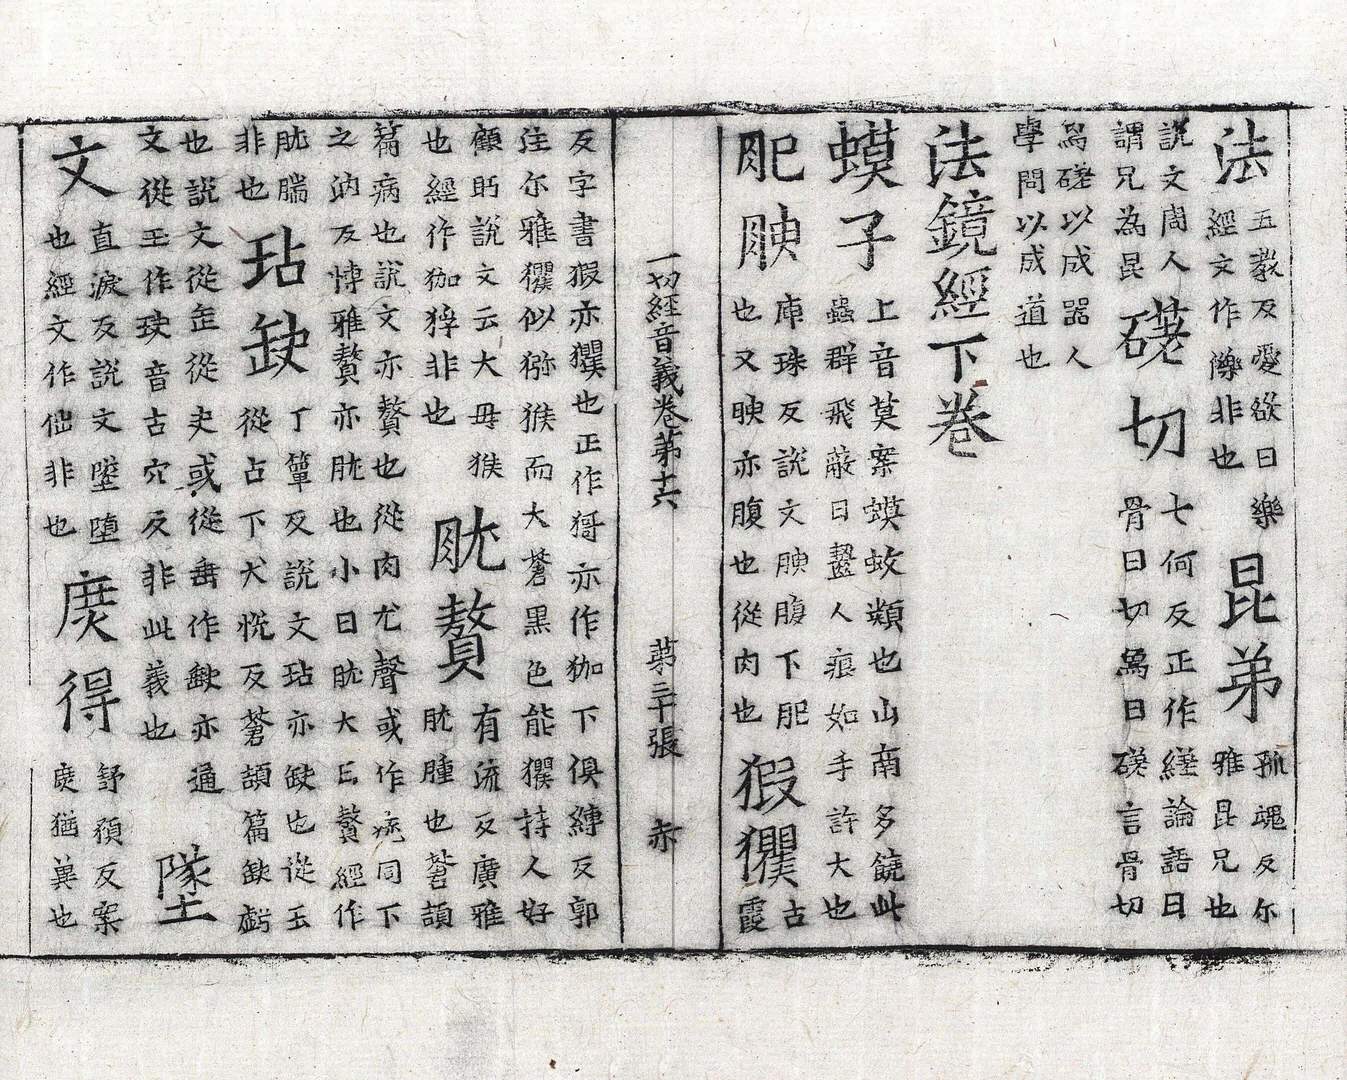 法 五教反愛欲曰樂
經文作濼非也
昆弟 孤魂反尓
雅昆兄也
說文周人
謂兄為昆
磋切 七何反正作縒論語曰
骨曰切爲曰磋言骨切
爲磋以成器人
學問以成道也
法鏡經下卷
蟆子 上音莫案蟆蚊類也山南多饒此
蟲群飛蔽日齧人痕如手許大也
肥腴 庾珠反說文腴腹下肥
也又腴亦腹也從肉也
猳玃 古
霞
一切經音義卷第十六 第三十張 赤
反字書猳亦玃也正作㺊亦作狖下俱縛反郭
注尓雅玃似猕猴而大蒼黑色能玃持人好
顧眄說文云大母猴
也經作狖猙非也
肬贅 有流反廣雅
肬腫也蒼頡
篇病也說文亦贅也從肉尤聲或作疣同下
之汭反博雅贅亦肬也小曰肬大曰贅經作
肬腨
非也
玷缺 丁簟反說文玷亦缺也從玉
從占下犬恱反蒼頡篇缺虧
也說文從缶從夬或從垂作缺亦通
文從玉作玦音古穴反非此義也
墜
文 直淚反說文墜墮
也經文作㑁非也
庶得 舒預反案
庶猶冀也